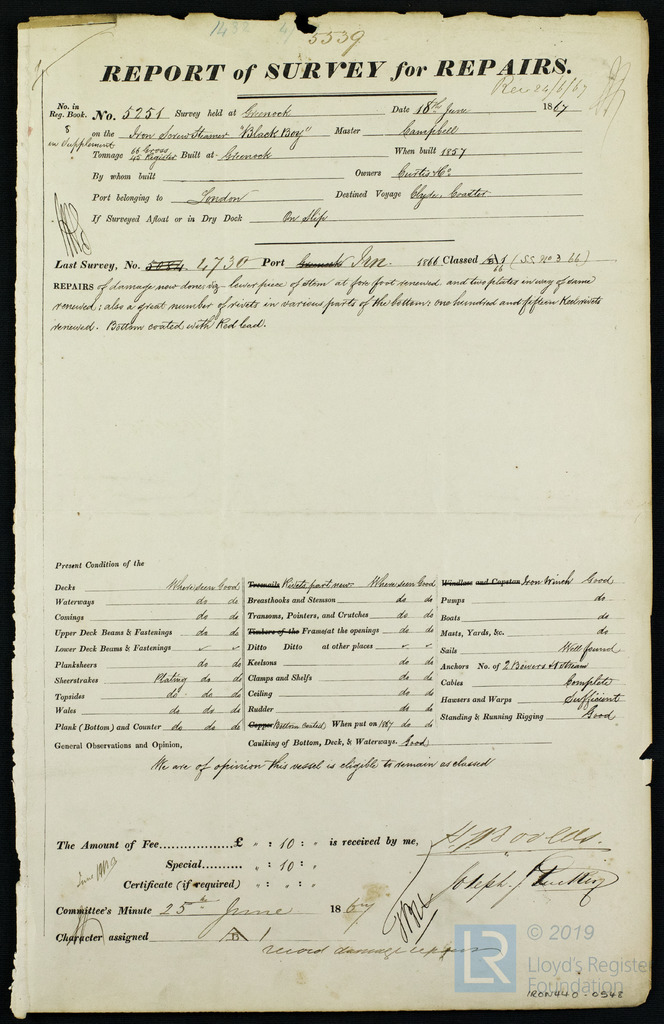 5539
REPORT of SURVEY for REPAIRS.
Rec 24/6/67
No. in Reg. Book. No. 5251 Survey held at Greenock Date 18th June 1867
8 in Supplement on the Iron Screw Steamer "Black Boy" Master Campbell
Tonnage 66 Gross 45 Register Built at Greenock When built 1857
By whom built Owners Curtis & Co
Port belonging to London Destined Voyage Clyde, Coaster
If Surveyed Afloat or in Dry Dock On Slip
Last Survey, No. 5084 4730 Port Greenock Jan. 1866 Classed A 1 66 (SS. No 3 66)
REPAIRS of damage now done; viz lower piece of stem at fore foot renewed and two plates in way of same
renewed; also a great number of rivets in various parts of the bottom: one hundred and fifteen Keel rivets
renewed. Bottom coated with Red lead.
Present Condition of the
Decks Where seen Good
Waterways do do
Comings do do
Upper Deck Beams & Fastenings do do
Lower Deck Beams & Fastenings
Planksheers do do
Sheerstrakes Plating do do
Topsides do do do
Wales do do do
Plank (Bottom) and Counter do do do
Treenails Rivets part new Where seen Good
Breasthooks and Stemson do do
Transoms, Pointers, and Crutches do do
Timbers of the Frames at the openings do do
Ditto Ditto at other places
Keelsons do do
Clamps and Shelfs do do
Ceiling do do
Rudder do do
Copper (Bottom coated) When put on 1867 do do
Caulking of Bottom, Deck, & Waterways. Good
Windlass and Capstan Iron Winch Good
Pumps do
Boats do
Masts, Yards, &c. do
Sails Well found
Anchors No. of 2 Bowers & Stream
Cables Complete
Hawsers and Warps Sufficient
Standing & Running Rigging Good
General Observations and Opinion,
We are of opinion this vessel is eligible to remain as classed
The Amount of Fee.................£ " : 10 : " is received by me,
Special.......... " : 10 : "
Certificate (if required) " : " : "
Committee's Minute 25th June 1867
Character assigned A 1
record damage repairs
© 2019
LR Lloyd's Register
Foundation
IRON440-0548